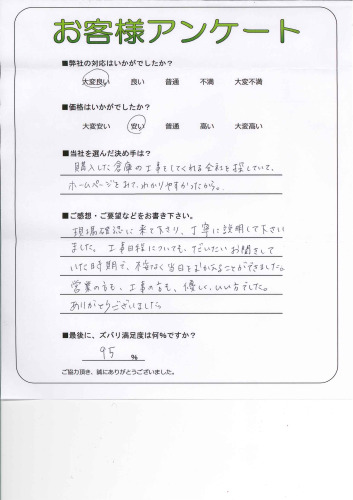 お客様アンケート
■弊社の対応はいかがでしたか?
大変良い 良い 普通 不満 大変不満
■価格はいかがでしたか?
大変安い 安い 普通 高い 大変高い
■当社を選んだ決め手は?
購入した倉庫の工事をしてくれる会社を探していて、
ホームページをみて、わかりやすかったから。
■ご感想・ご要望などをお書き下さい。
現場確認に来て下さり、丁寧に説明して下さい
ました。工事日程についても、だいたいお聞きして
いた時期で、不安なく当日をむかえることができました。
営業の方も、工事の方も、優しく、いい方でした。
ありがとうございました
■最後に、ズバリ満足度は何%ですか?
95 %
ご協力頂き、誠にありがとうございました。